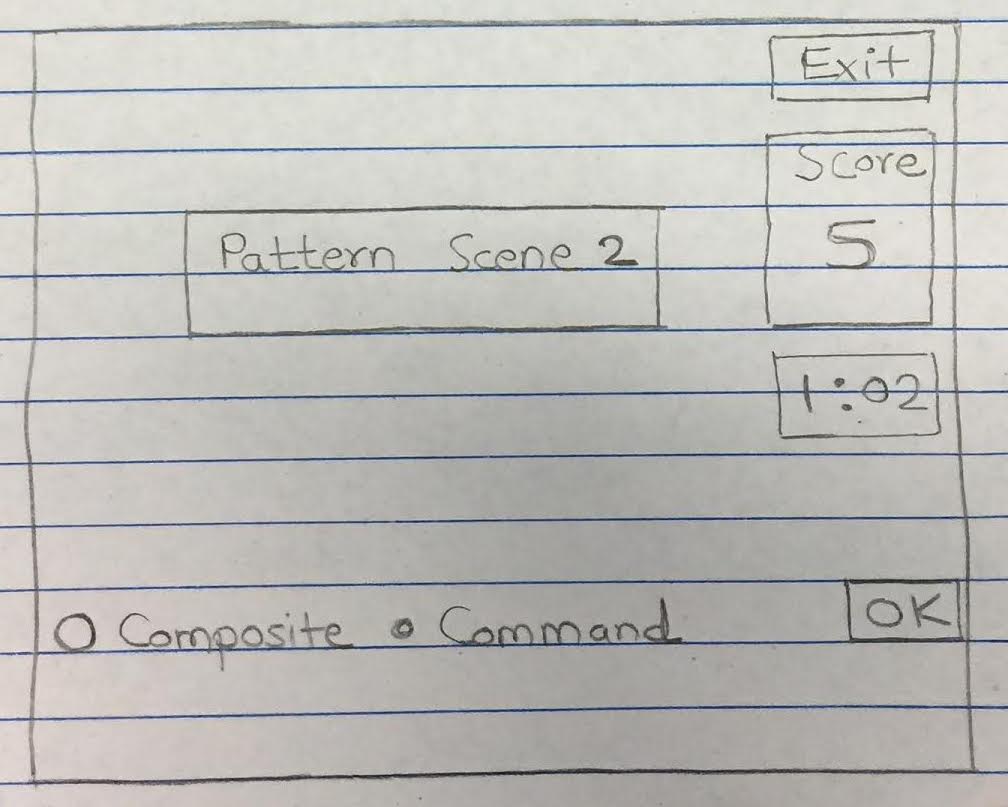 Exit
Score
Pattern Scene 2
5
1:02
Composite Command
OK